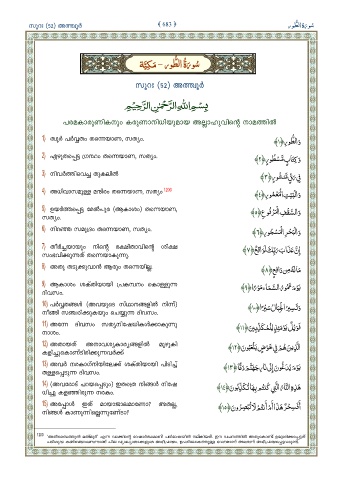 സൂറഃ (52) അത്ത്വൂർ
﴿ 683 ﴾
سُورَةُ الطُّورِ
سُورَةُ الطُّورِ - مَكِّيَّة
സൂറഃ (52) അത്ത്വൂർ
بِسْمِ اللهِ الرَّحْمٰنِ الرَّحِيْمِ
പരമകാരുണികനും കരുണാനിധിയുമായ അല്ലാഹുവിന്റെ നാമത്തിൽ
1) ത്വൂർ പർവ്വതം തന്നെയാണ, സത്യം.
وَالطُّورِ ﴿١﴾
2) എഴുതപ്പെട്ട ഗ്രന്ഥം തന്നെയാണ, സത്യം.
وَكِتَابٍ مَسْطُورٍ ﴿٢﴾
3) നിവർത്തിവെച്ച തുകലിൽ
فِي رَقٍّ مَنْشُورٍ ﴿٣﴾
4) അധിവാസമുള്ള മന്ദിരം തന്നെയാണ, സത്യം.
وَالْبَيْتِ الْمَعْمُورِ ﴿٤﴾
5) ഉയർത്തപ്പെട്ട മേൽപുര (ആകാശം) തന്നെയാണ,
സത്യം.
وَالسَّقْفِ الْمَرْفُوعِ ﴿٥﴾
6) നിറഞ്ഞ സമുദ്രം തന്നെയാണ, സത്യം.
وَالْبَحْرِ الْمَسْجُورِ ﴿٦﴾
7) തീർച്ചയായും നിന്റെ രക്ഷിതാവിന്റെ ശിക്ഷ
സംഭവിക്കുന്നത് തന്നെയാകുന്നു.
إِنَّ عَذَابَ رَبِّكَ لَوَاقِعٌ ﴿٧﴾
8) അതു തടുക്കുവാൻ ആരും തന്നെയില്ല.
مَا لَهُ مِنْ دَافِعٍ ﴿٨﴾
9) ആകാശം ശക്തിയായി പ്രകമ്പനം കൊള്ളുന്ന
ദിവസം.
يَوْمَ تَمُورُ السَّمَاءُ مَوْرًا ﴿٩﴾
10) പർവ്വതങ്ങൾ (അവയുടെ സ്ഥാനങ്ങളിൽ നിന്ന്)
നീങ്ങി സഞ്ചരിക്കുകയും ചെയ്യുന്ന ദിവസം.
وَتَسِيرُ الْجِبَالُ سَيْرًا ﴿١٠﴾
11) അന്നേ ദിവസം സത്യനിഷേധികൾക്കാകുന്നു
നാശം.
فَوَيْلٌ يَوْمَئِذٍ لِلْمُكَذِّبِينَ ﴿١١﴾
12) അതായത് അനാവശ്യകാര്യങ്ങളിൽ മുഴുകി
കളിച്ചുകൊണ്ടിരിക്കുന്നവർക്ക്
الَّذِينَ هُمْ فِي خَوْضٍ يَلْعَبُونَ ﴿١٢﴾
13) അവർ നരകാഗ്നിയിലേക്ക് ശക്തിയായി പിടിച്ച്
തള്ളപ്പെടുന്ന ദിവസം.
يَوْمَ يُدَعُّونَ إِلَى نَارِ جَهَنَّمَ دَعًّا ﴿١٣﴾
14) (അവരോട് പറയപ്പെടും) ഇതത്രെ നിങ്ങൾ നിഷേ
ധിച്ചു കളഞ്ഞിരുന്ന നരകം.
هَذِهِ النَّارُ الَّتِي كُنْتُمْ بِهَا تُكَذِّبُونَ ﴿١٤﴾
15) അപ്പോൾ ഇത് മായാജാലമാണോ? അതല്ല,
നിങ്ങൾ കാണുന്നില്ലെന്നുണ്ടോ?
أَفَسِحْرٌ هَذَا أَمْ أَنْتُمْ لَا تُبْصِرُونَ ﴿١٥﴾